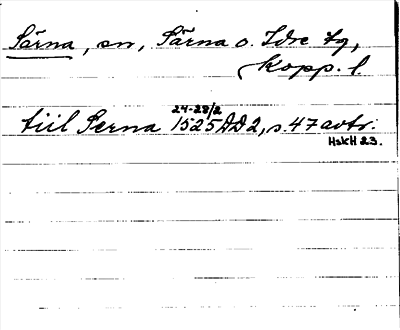 Särna, sn, Särna o. Idre tg,
Kopp. l.
24-28/2
tiil Serna 1525 DD2, s. 47 avtr.
HskH 23.